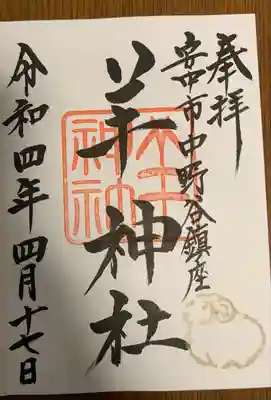 奉拝
安中市中野谷鎮座
羊神社
令和四年四月十七日